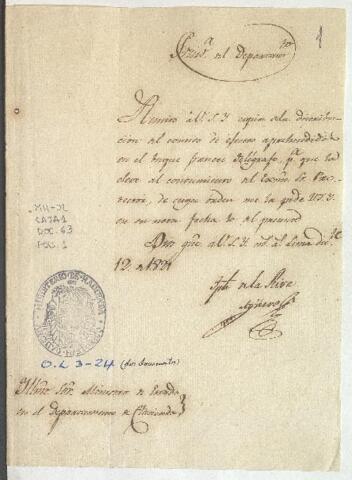 1
Presid.ª del Departam.to
Remito á V.S.Y. copia de la distribu-
cion del comiso de efectos aprehendidos
en el buque frances Telégrafo, p.ª que la
eleve al conocimiento del Excmo. S.
de cuya orden me la pide V.S.Y.
en su nota fecha 10 del presente
Dios gue. á V.S.Y. m.s a.s Lima dic.e
12 de 1821
José de la Riva
Agüero
MH-OL
CAJA 1
DOC. 63
FOL. 1
MINISTERIO DE HACIENDA
O.L 3-24 (dos documentos)
Illmo Sor. Ministro de Estado
en el departamento de Hacienda